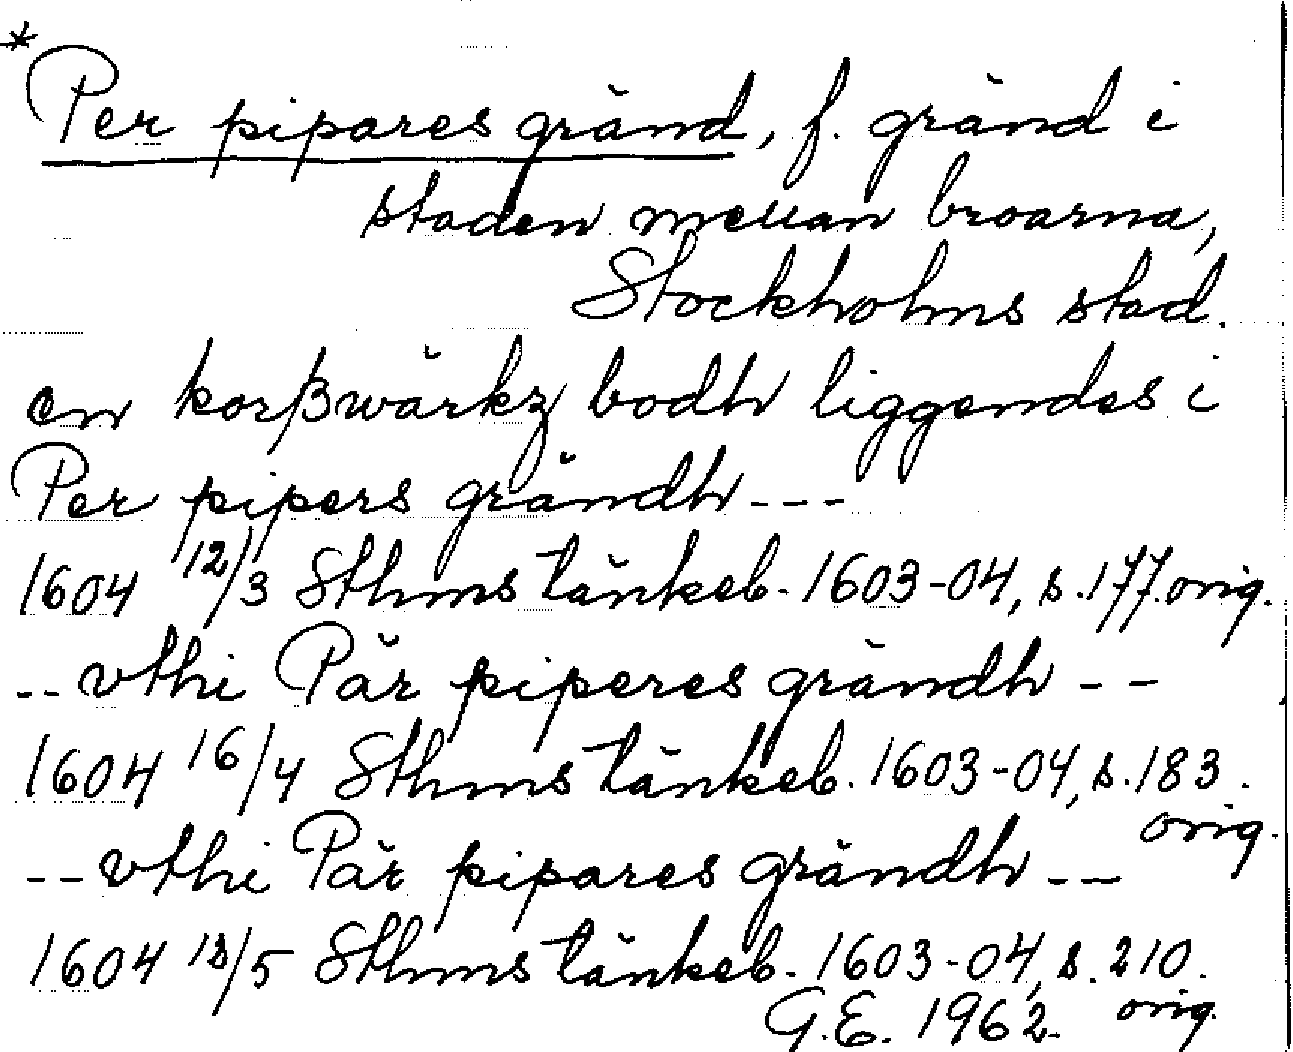 * Per pipares gränd, f. gränd i
staden mellan broarna,
Stockholms stad.
en korßwärkz bodh liggendes i
Per pipers grändh ---
1604 12/3 Sthms tänkeb. 1603-04, s. 177. orig.
-- vthi Pär piperes grändh --
1604 16/4 Sthms tänkeb. 1603-04, s. 183.
orig.
-- vthi Pär pipares grändh --
1604 /5 Sthms tänkeb. 1603-04, s. 210.
orig.
G.E. 1962.